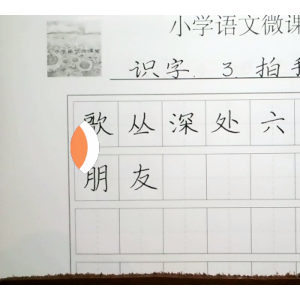 小学语文微课
识字.3 拍手
歌丛深处六
朋友